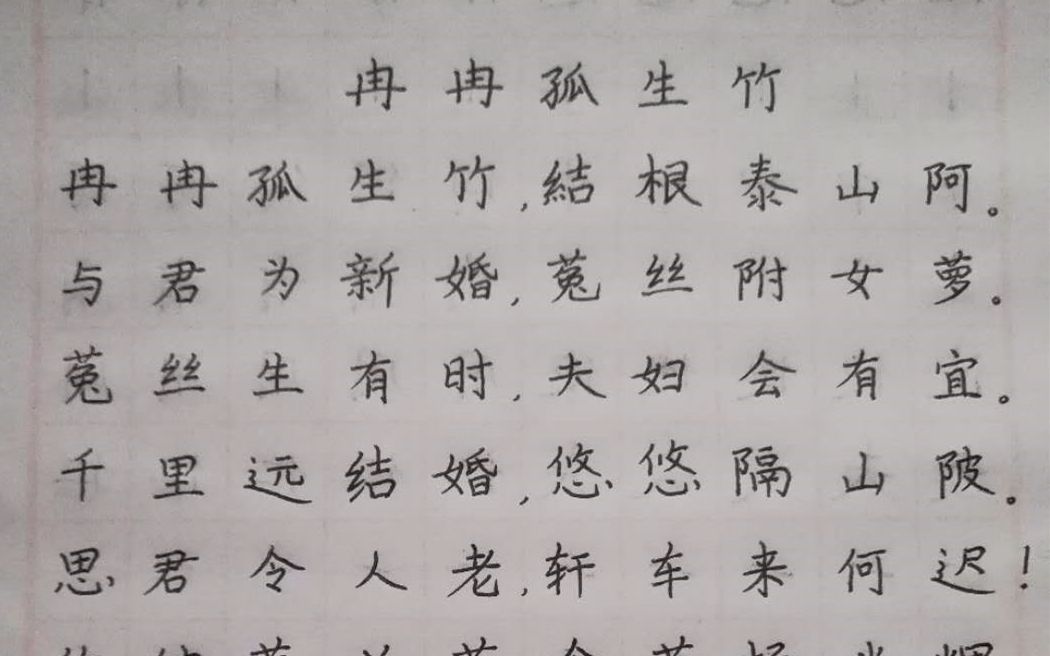 冉冉孤生竹
冉冉孤生竹,結根泰山阿。
与君为新婚,菟丝附女萝。
菟丝生有时,夫妇会有宜。
千里远结婚,悠悠隔山陂。
思君令人老,轩车来何迟!